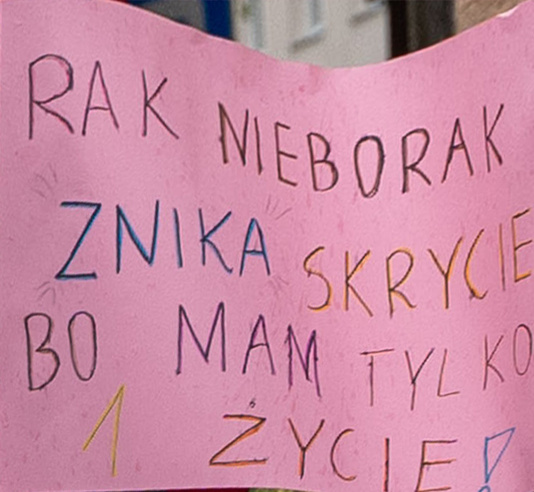 RAK NIEBORAK
ZNIKA SKRYCIE
BO MAM TYLKO
1 ŻYCIE!